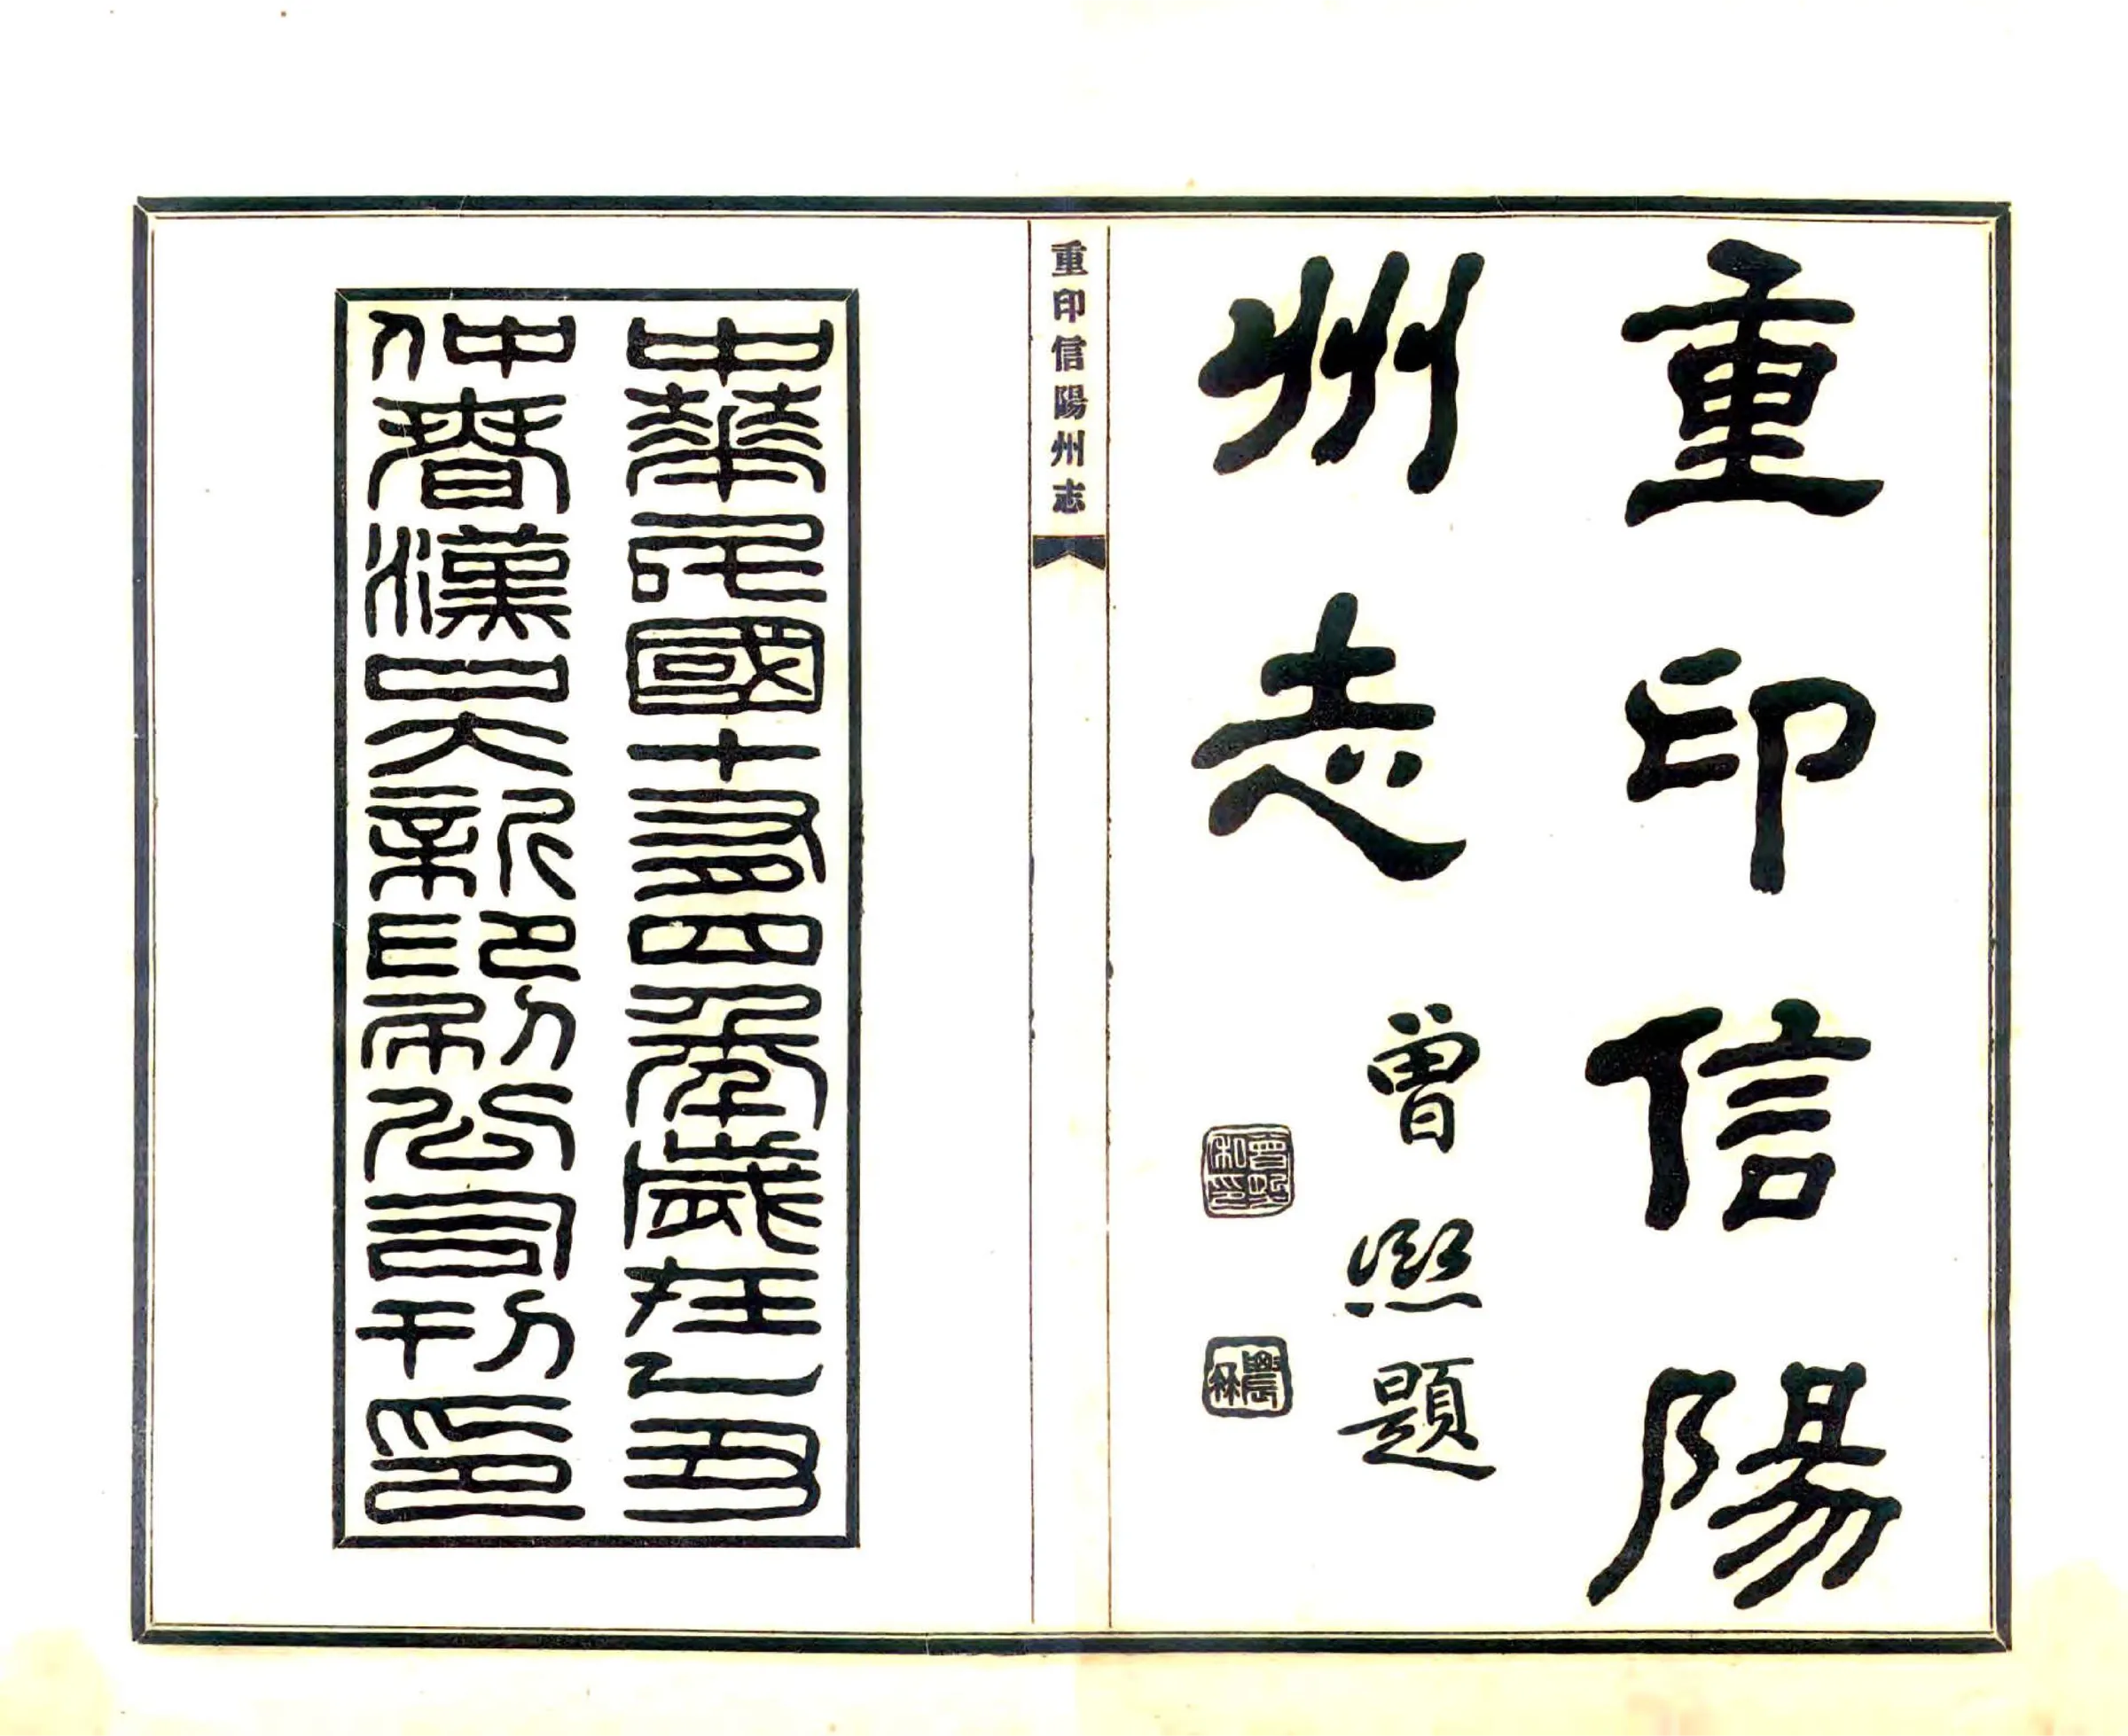 重印信陽
州志
曾熙題
曾熙私印
農髯
重印信陽州志
中華民國十有四年歲在乙丑
仲春漢口大新印刷公司刊印